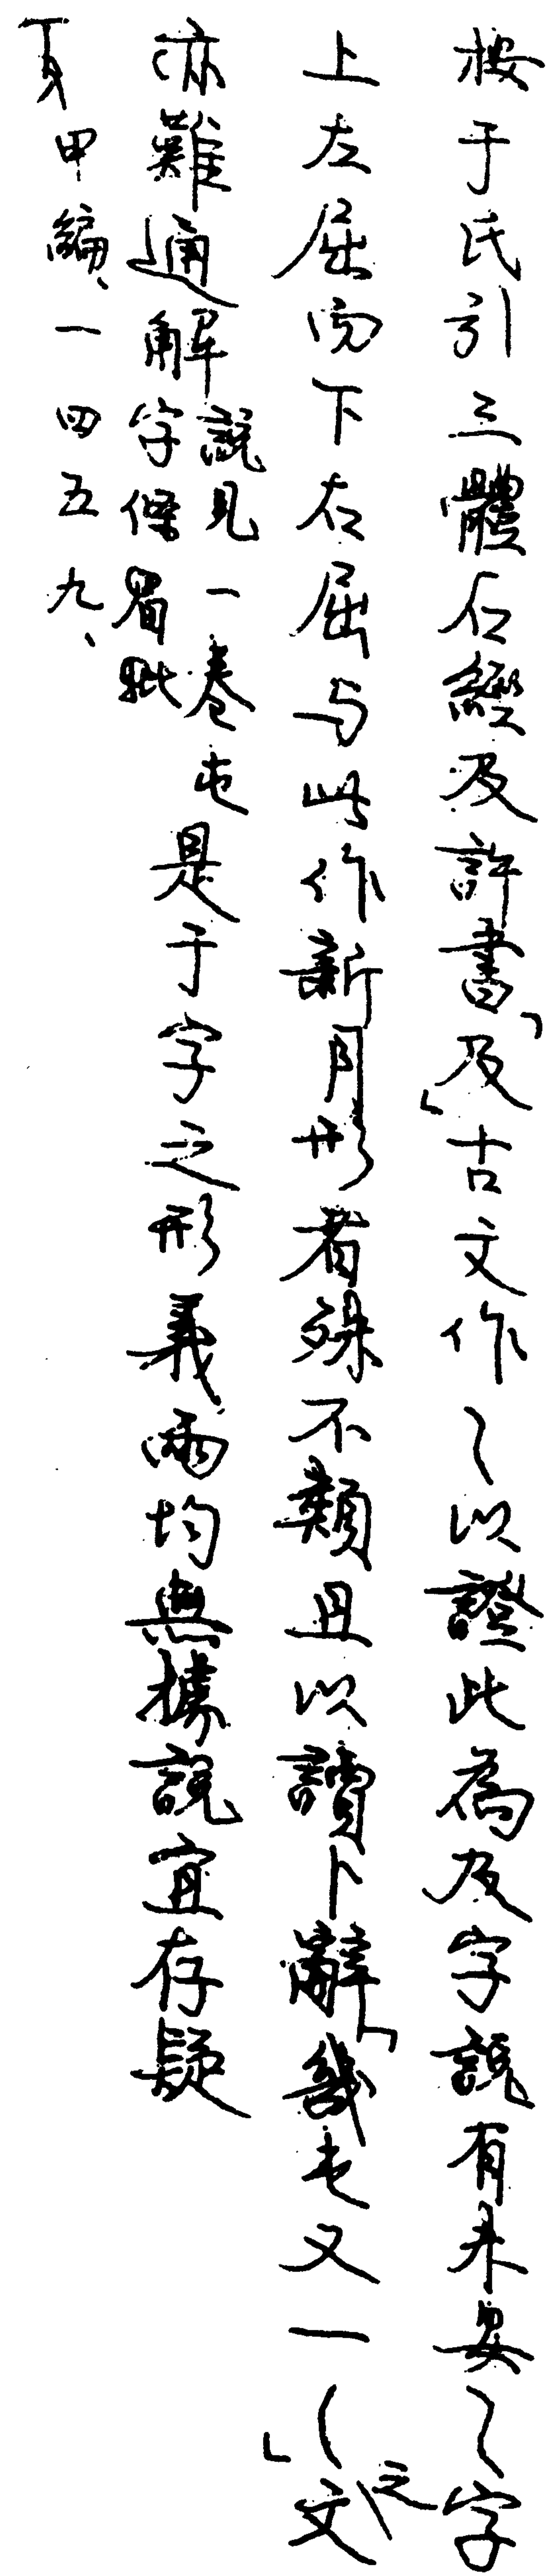 按于氏引三體石經及許書「及」古文作乀以證此為及字說有未安乀字
上左屈而下右屈与此作新月形者殊不類且以讀卜辭「幾屯又一㇁」之文
亦難通解說見一卷屯字條眉批是于字之形義兩均無據說宜存疑
甲編、一四五九、